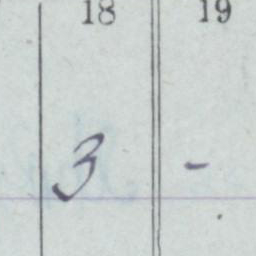 18 19
3 -